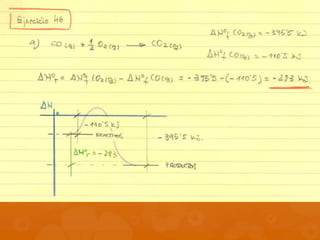 Ejercicio 46
ΔHºf CO₂(g) = -393'5 KJ
a) CO(g) + 1/2 O₂(g) → CO₂(g)
ΔHºf CO(g) = -110'5 KJ
ΔHºr = ΔHºf CO₂(g) - ΔHºf CO(g) = -393'5 - (-110'5) = -283 KJ
ΔH
-110'5 KJ
REACTIVOS
-393'5 KJ.
ΔHºr = -283
PRODUCTOS